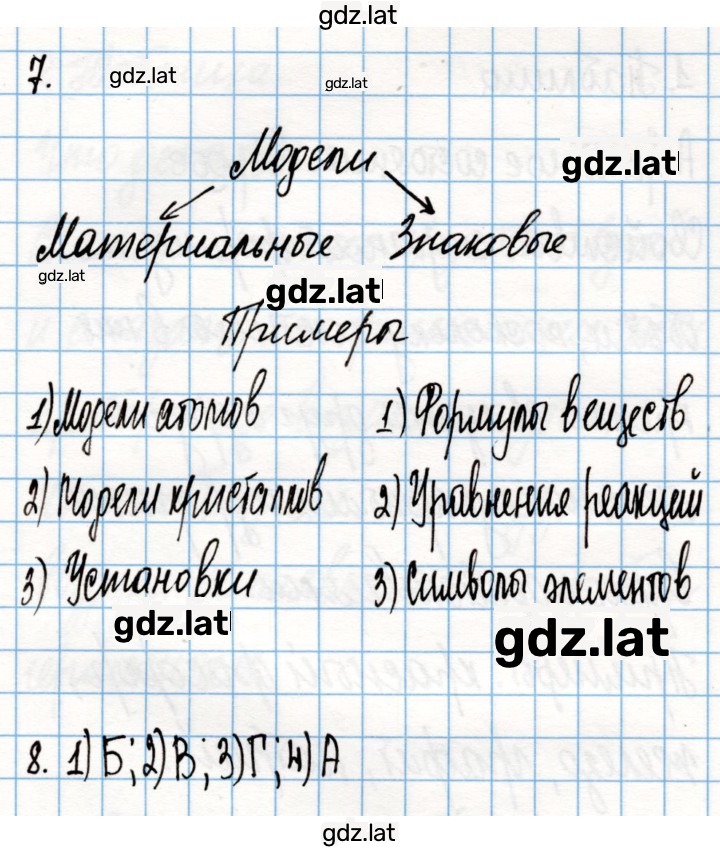 gdz.lat
7.
gdz.lat
gdz.lat
Модели
gdz.lat
Материальные Знаковые
gdz.lat
gdz.lat
Примеры
1) Модели атомов 1) Формулы веществ
2) Модели кристаллов 2) Уравнения реакций
3) Установки 3) Символы элементов
gdz.lat
gdz.lat
8. 1) Б; 2) В; 3) Г; 4) А
gdz.lat